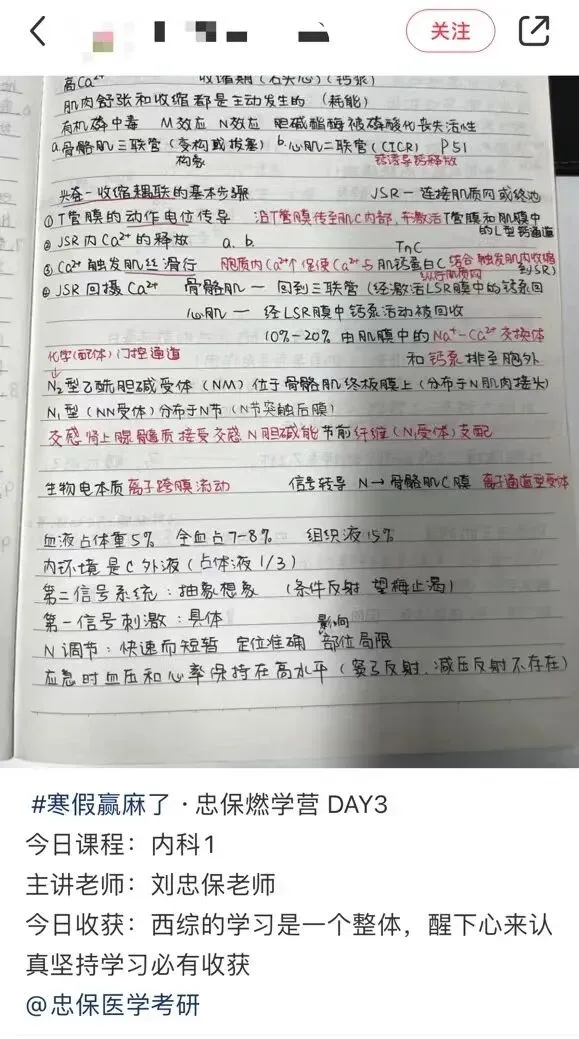 关注
高Ca²⁺ 收缩期(右头心)(钙泵)
肌肉舒张和收缩都是主动发生的 (耗能)
有机磷中毒 M效应 N效应 胆碱酯酶被磷酸化丧失活性
a.骨骼肌三联管(变构或拔塞) b.心肌二联管(CICR) P51
构象 钙诱导钙释放
兴奋-收缩耦联的基本步骤 JSR-连接肌质网或终池
①T管膜的动作电位传导 沿T管膜传至肌C内部,并激活T管膜和肌膜中
的L型钙通道
②JSR内Ca²⁺的释放 a. b.
TnC
③Ca²⁺触发肌丝滑行 胞质内Ca²⁺↑促使Ca²⁺与肌钙蛋白C结合触发肌肉收缩
纵行肌质网
④JSR回摄Ca²⁺ 骨骼肌一回到三联管(经激活LSR膜中的钙泵回
到SR)
心肌一经LSR膜中钙泵活动被回收
10%-20%由肌膜中的Na⁺-Ca²⁺交换体
化学(配体)门控通道 和钙泵排至胞外
N₂型乙酰胆碱受体(NM)位于骨骼肌终板膜上(分布于N肌肉接头)
N₁型(NN受体)分布于N节(N节突触后膜)
交感肾上腺髓质接受交感N胆碱能节前纤维(N₁受体)支配
生物电本质离子跨膜流动 信号转导 N→骨骼肌C膜 离子通道型受体
血液占体重5% 全血占7-8% 组织液15%
内环境是C外液(占体液1/3)
第二信号系统:抽象想象 (条件反射 望梅止渴)
第一信号刺激:具体
影响
N调节:快速而短暂 定位准确 部位局限
应急时血压和心率保持在高水平(窦弓反射.减压反射不存在)
#寒假赢麻了·忠保燃学营 DAY3
今日课程:内科1
主讲老师:刘忠保老师
今日收获:西综的学习是一个整体,醒下心来认
真坚持学习必有收获
@忠保医学考研